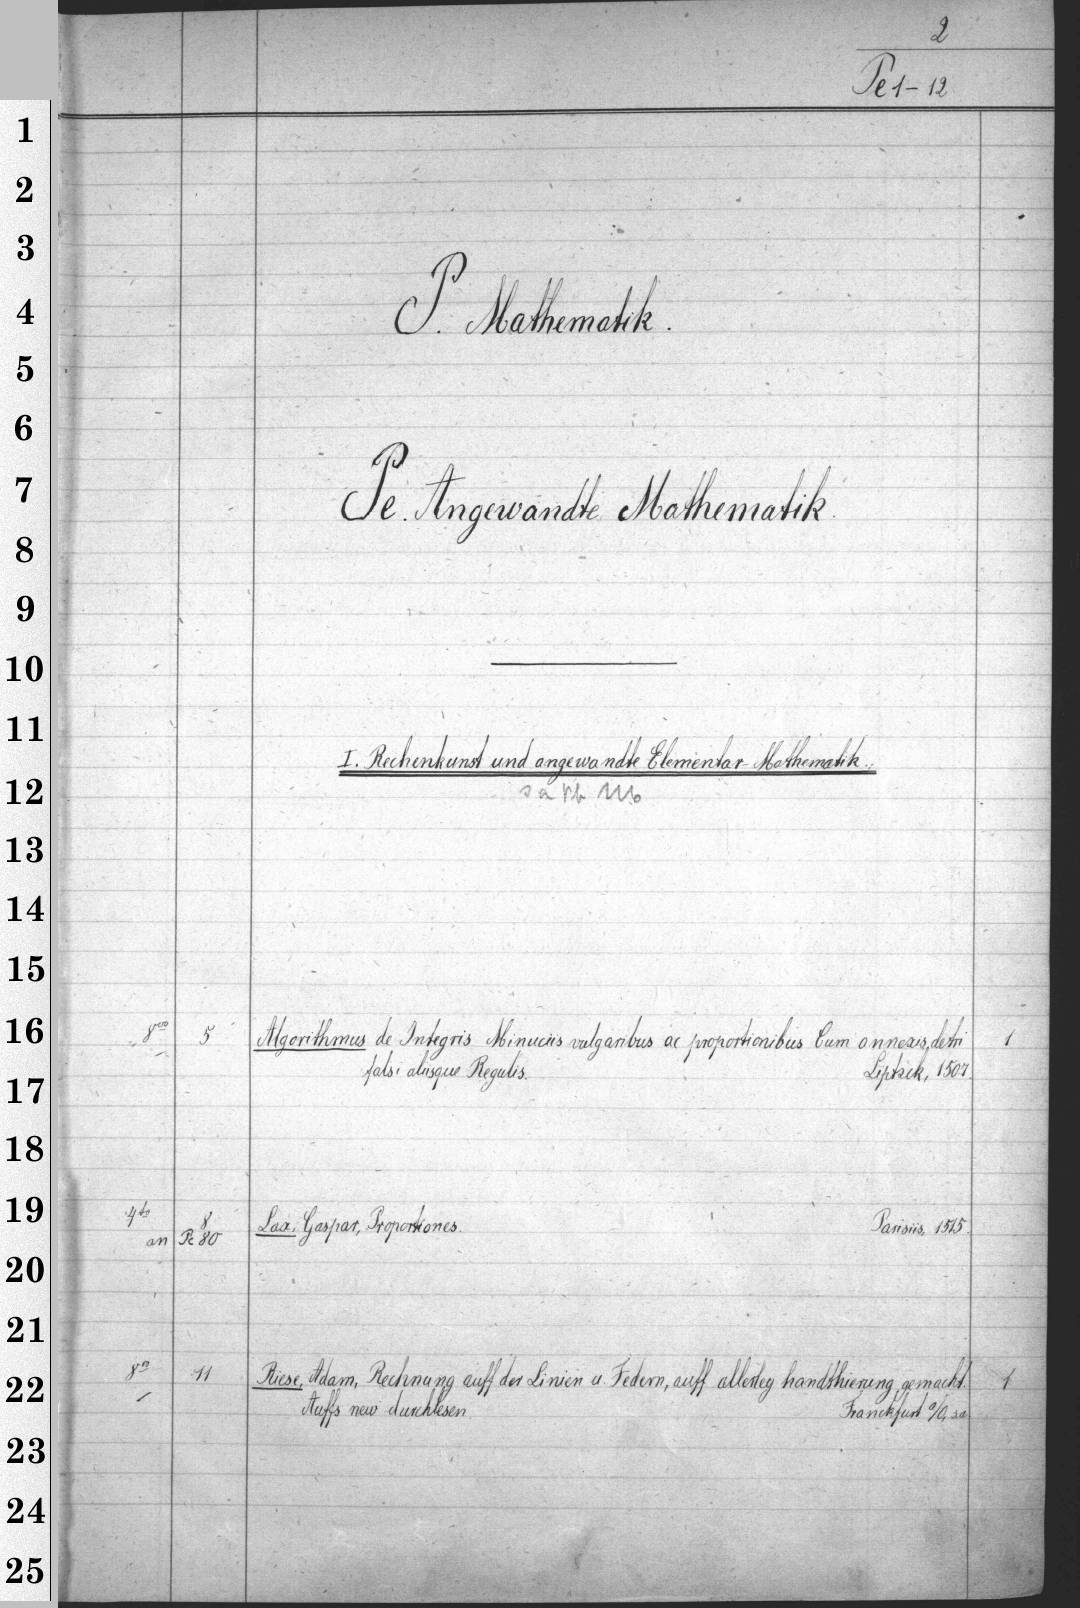 2
Pe 1-12
P. Mathematik.
Pe. Angewandte Mathematik.
I. Rechenkunst und angewandte Elementar-Mathematik.
8vo 5 Algorithmus de Integris Minuciis vulgaribus ac proportionibus Cum annexis, detri 1
falsi aliisque Regulis. Liptzick, 1507.
4to 8 Lax, Gaspar, Proportiones. Parisiis, 1515.
an Pe 80
8o 11 Riese, Adam, Rechnung auff der Linien u. Federn, auff allerley handthierung gemacht. 1
Auffs new durchlesen Franckfurt a/O, sa
1
2
3
4
5
6
7
8
9
10
11
12
13
14
15
16
17
18
19
20
21
22
23
24
25